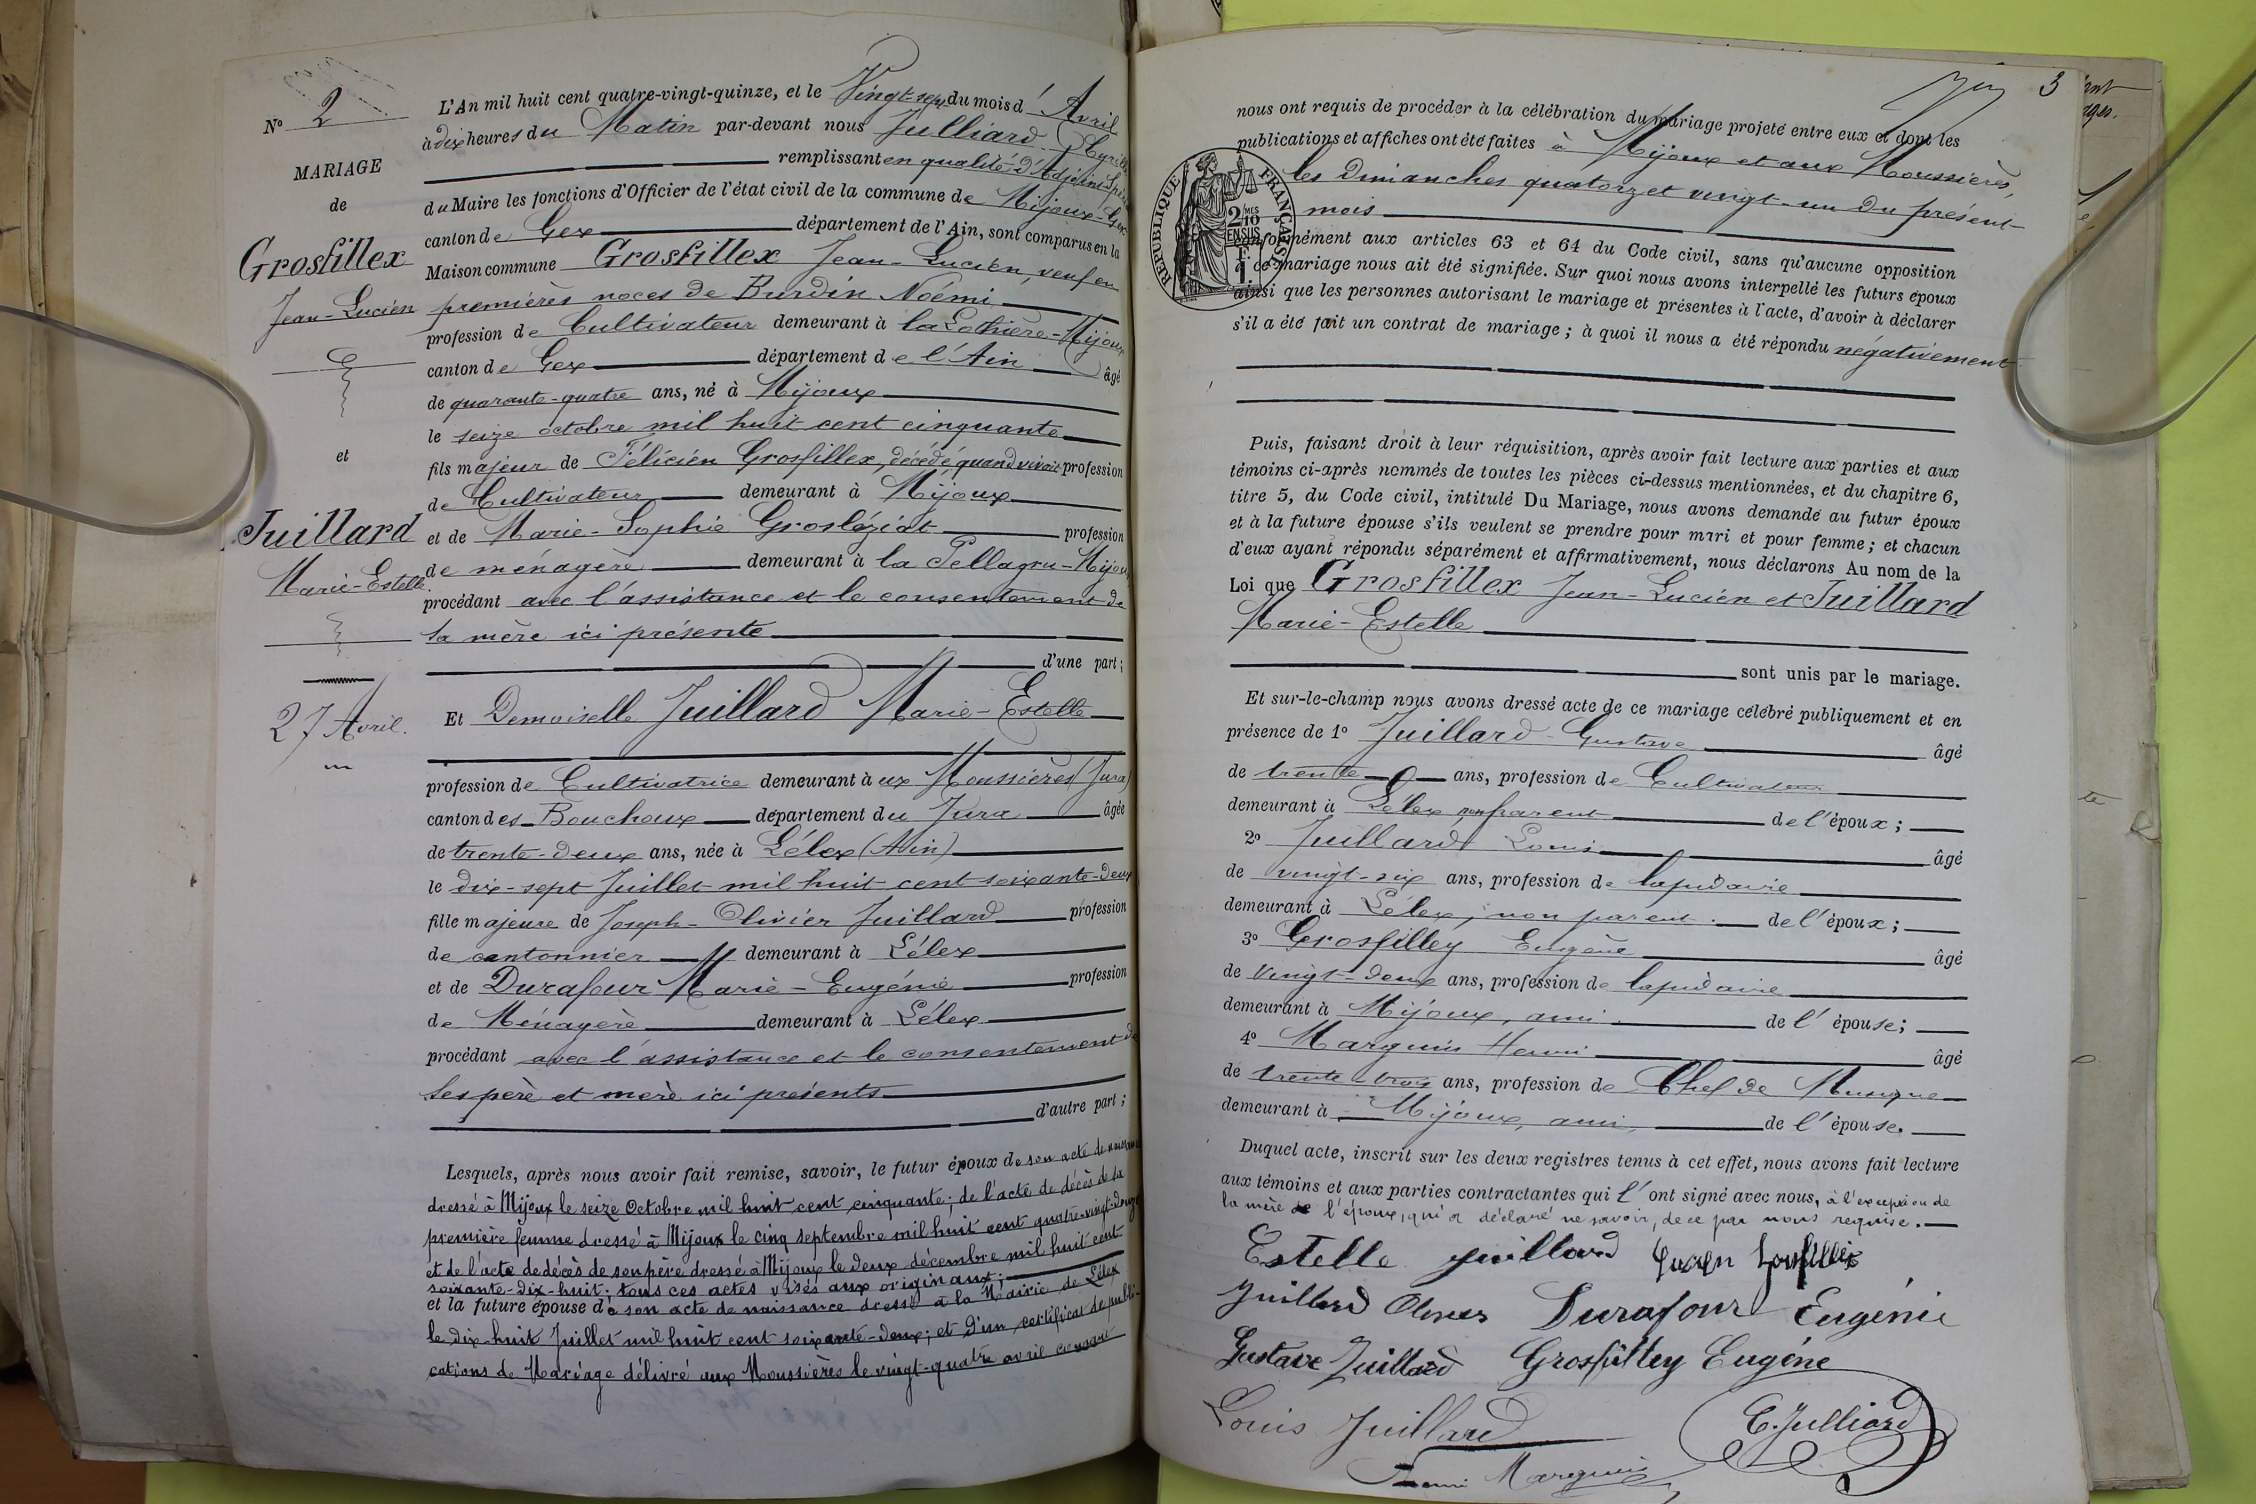 N° 2
MARIAGE
de
Grosfillex
Jean-Lucien
et
Juillard
Marie-Estelle
27 Avril.
L'An mil huit cent quatre-vingt-quinze, et le Vingt-sept du mois d'Avril
à dix heures du Matin par-devant nous Julliard
remplissant en qualité d'Adjoint
du Maire les fonctions d'Officier de l'état civil de la commune de Mijoux-Gex
canton de Gex département de l'Ain, sont comparus en la
Maison commune Grosfillex Jean-Lucien, veuf en
premières noces de Burdin Noémi
profession de Cultivateur demeurant à la Mijoux
canton de Gex département de l'Ain âgé
de quarante-quatre ans, né à Mijoux
le seize octobre mil huit cent cinquante
fils majeur de Félicien Grosfillex, décédé quand vivait profession
de Cultivateur demeurant à Mijoux
et de Marie-Sophie Grosléziat profession
de ménagère demeurant à la Pellagru-Mijoux
procédant avec l'assistance et le consentement de
sa mère ici présente
d'une part;
Et Demoiselle Juillard Marie-Estelle
profession de Cultivatrice demeurant à ux Moussières (Jura)
canton des Bouchoux département du Jura âgée
de trente-deux ans, née à Lélex (Ain)
le dix-sept Juillet mil huit cent soixante-deux
fille majeure de Joseph-Olivier Juillard profession
de cantonnier demeurant à Lélex
et de Durafour Marie-Eugénie profession
de Ménagère demeurant à Lélex
procédant avec l'assistance et le consentement de
ses père et mère ici présents
d'autre part;
Lesquels, après nous avoir fait remise, savoir, le futur époux de son acte de naissance
dressé à Mijoux le seize Octobre mil huit cent cinquante; de l'acte de décès de sa
première femme dressé à Mijoux le cinq septembre mil huit cent quatre-vingt-douze
et de l'acte de décès de son père dressé à Mijoux le deux décembre mil huit cent
soixante-dix-huit; tous ces actes visés aux originaux;
et la future épouse de son acte de naissance dressé à la Mairie de Lélex
le dix-huit Juillet mil huit cent soixante-deux; et d'un certificat de publi-
cations de Mariage délivré aux Moussières le vingt-quatre avril courant
3
nous ont requis de procéder à la célébration du mariage projeté entre eux et dont les
publications et affiches ont été faites à Mijoux et aux Moussières,
les Dimanches quatorze et vingt-un du présent
mois
conformément aux articles 63 et 64 du Code civil, sans qu'aucune opposition
à ce mariage nous ait été signifiée. Sur quoi nous avons interpellé les futurs époux
ainsi que les personnes autorisant le mariage et présentes à l'acte, d'avoir à déclarer
s'il a été fait un contrat de mariage; à quoi il nous a été répondu négativement
RÉPUBLIQUE FRANÇAISE
2 MES 10
EN SUS
1 F.
Puis, faisant droit à leur réquisition, après avoir fait lecture aux parties et aux
témoins ci-après nommés de toutes les pièces ci-dessus mentionnées, et du chapitre 6,
titre 5, du Code civil, intitulé Du Mariage, nous avons demandé au futur époux
et à la future épouse s'ils veulent se prendre pour mari et pour femme; et chacun
d'eux ayant répondu séparément et affirmativement, nous déclarons Au nom de la
Loi que Grosfillex Jean-Lucien et Juillard
Marie-Estelle
sont unis par le mariage.
Et sur-le-champ nous avons dressé acte de ce mariage célébré publiquement et en
présence de 1° Juillard Gustave âgé
de trente ans, profession de Cultivateur
demeurant à Lélex non parent de l'époux;
2° Juillard Louis âgé
de vingt-six ans, profession de lapidaire
demeurant à Lélex, non parent de l'époux;
3° Grosfilley Eugène âgé
de vingt-deux ans, profession de lapidaire
demeurant à Mijoux, ami de l'épouse;
4° Marguin Henri âgé
de trente-trois ans, profession de Chef de Musique
demeurant à Mijoux, ami, de l'épouse.
Duquel acte, inscrit sur les deux registres tenus à cet effet, nous avons fait lecture
aux témoins et aux parties contractantes qui l'ont signé avec nous, à l'exception de
la mère de l'époux, qui a déclaré ne savoir, de ce par nous requise.
Estelle Juillard
Juillard Olivier Durafour Eugénie
Gustave Juillard Grosfilley Eugène
Louis Juillard C. Julliard
Henri Marguin